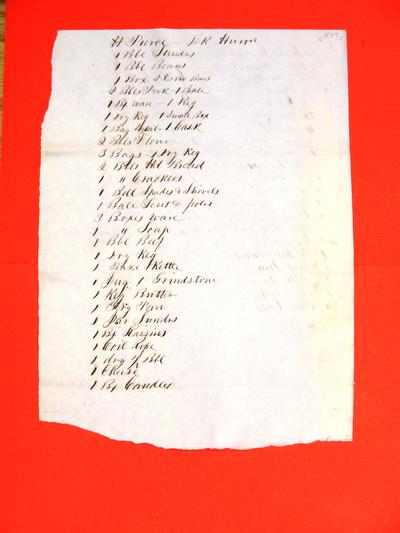 H Pierce — Lk Huron
1 Bbl Sundres
1 Bbl Beans
1 Box 2 Crow Bars
2 Bbls Pork - 1 Bale
1 Bx ware - 1 Keg
1 Dry Keg - 1 Small Box
1 Bag 1 Cask
2 Bbls Flour
3 Bags - 1 Dry Keg
2 Bbls Bread
1 " Crackers
1 Bdll Spades & Shovels
1 Bale Tent & poles
3 Boxes ware
1 " Soap
1 Bbl Beef
1 Dry Keg
1 Kettle
1 Jug 1 Grindstone
1 Keg Butter
1
1 Jar Sundres
1 Bx
1 Coil rope
1 dry ½ Bbl
1 Cheese
1 Bx Candles